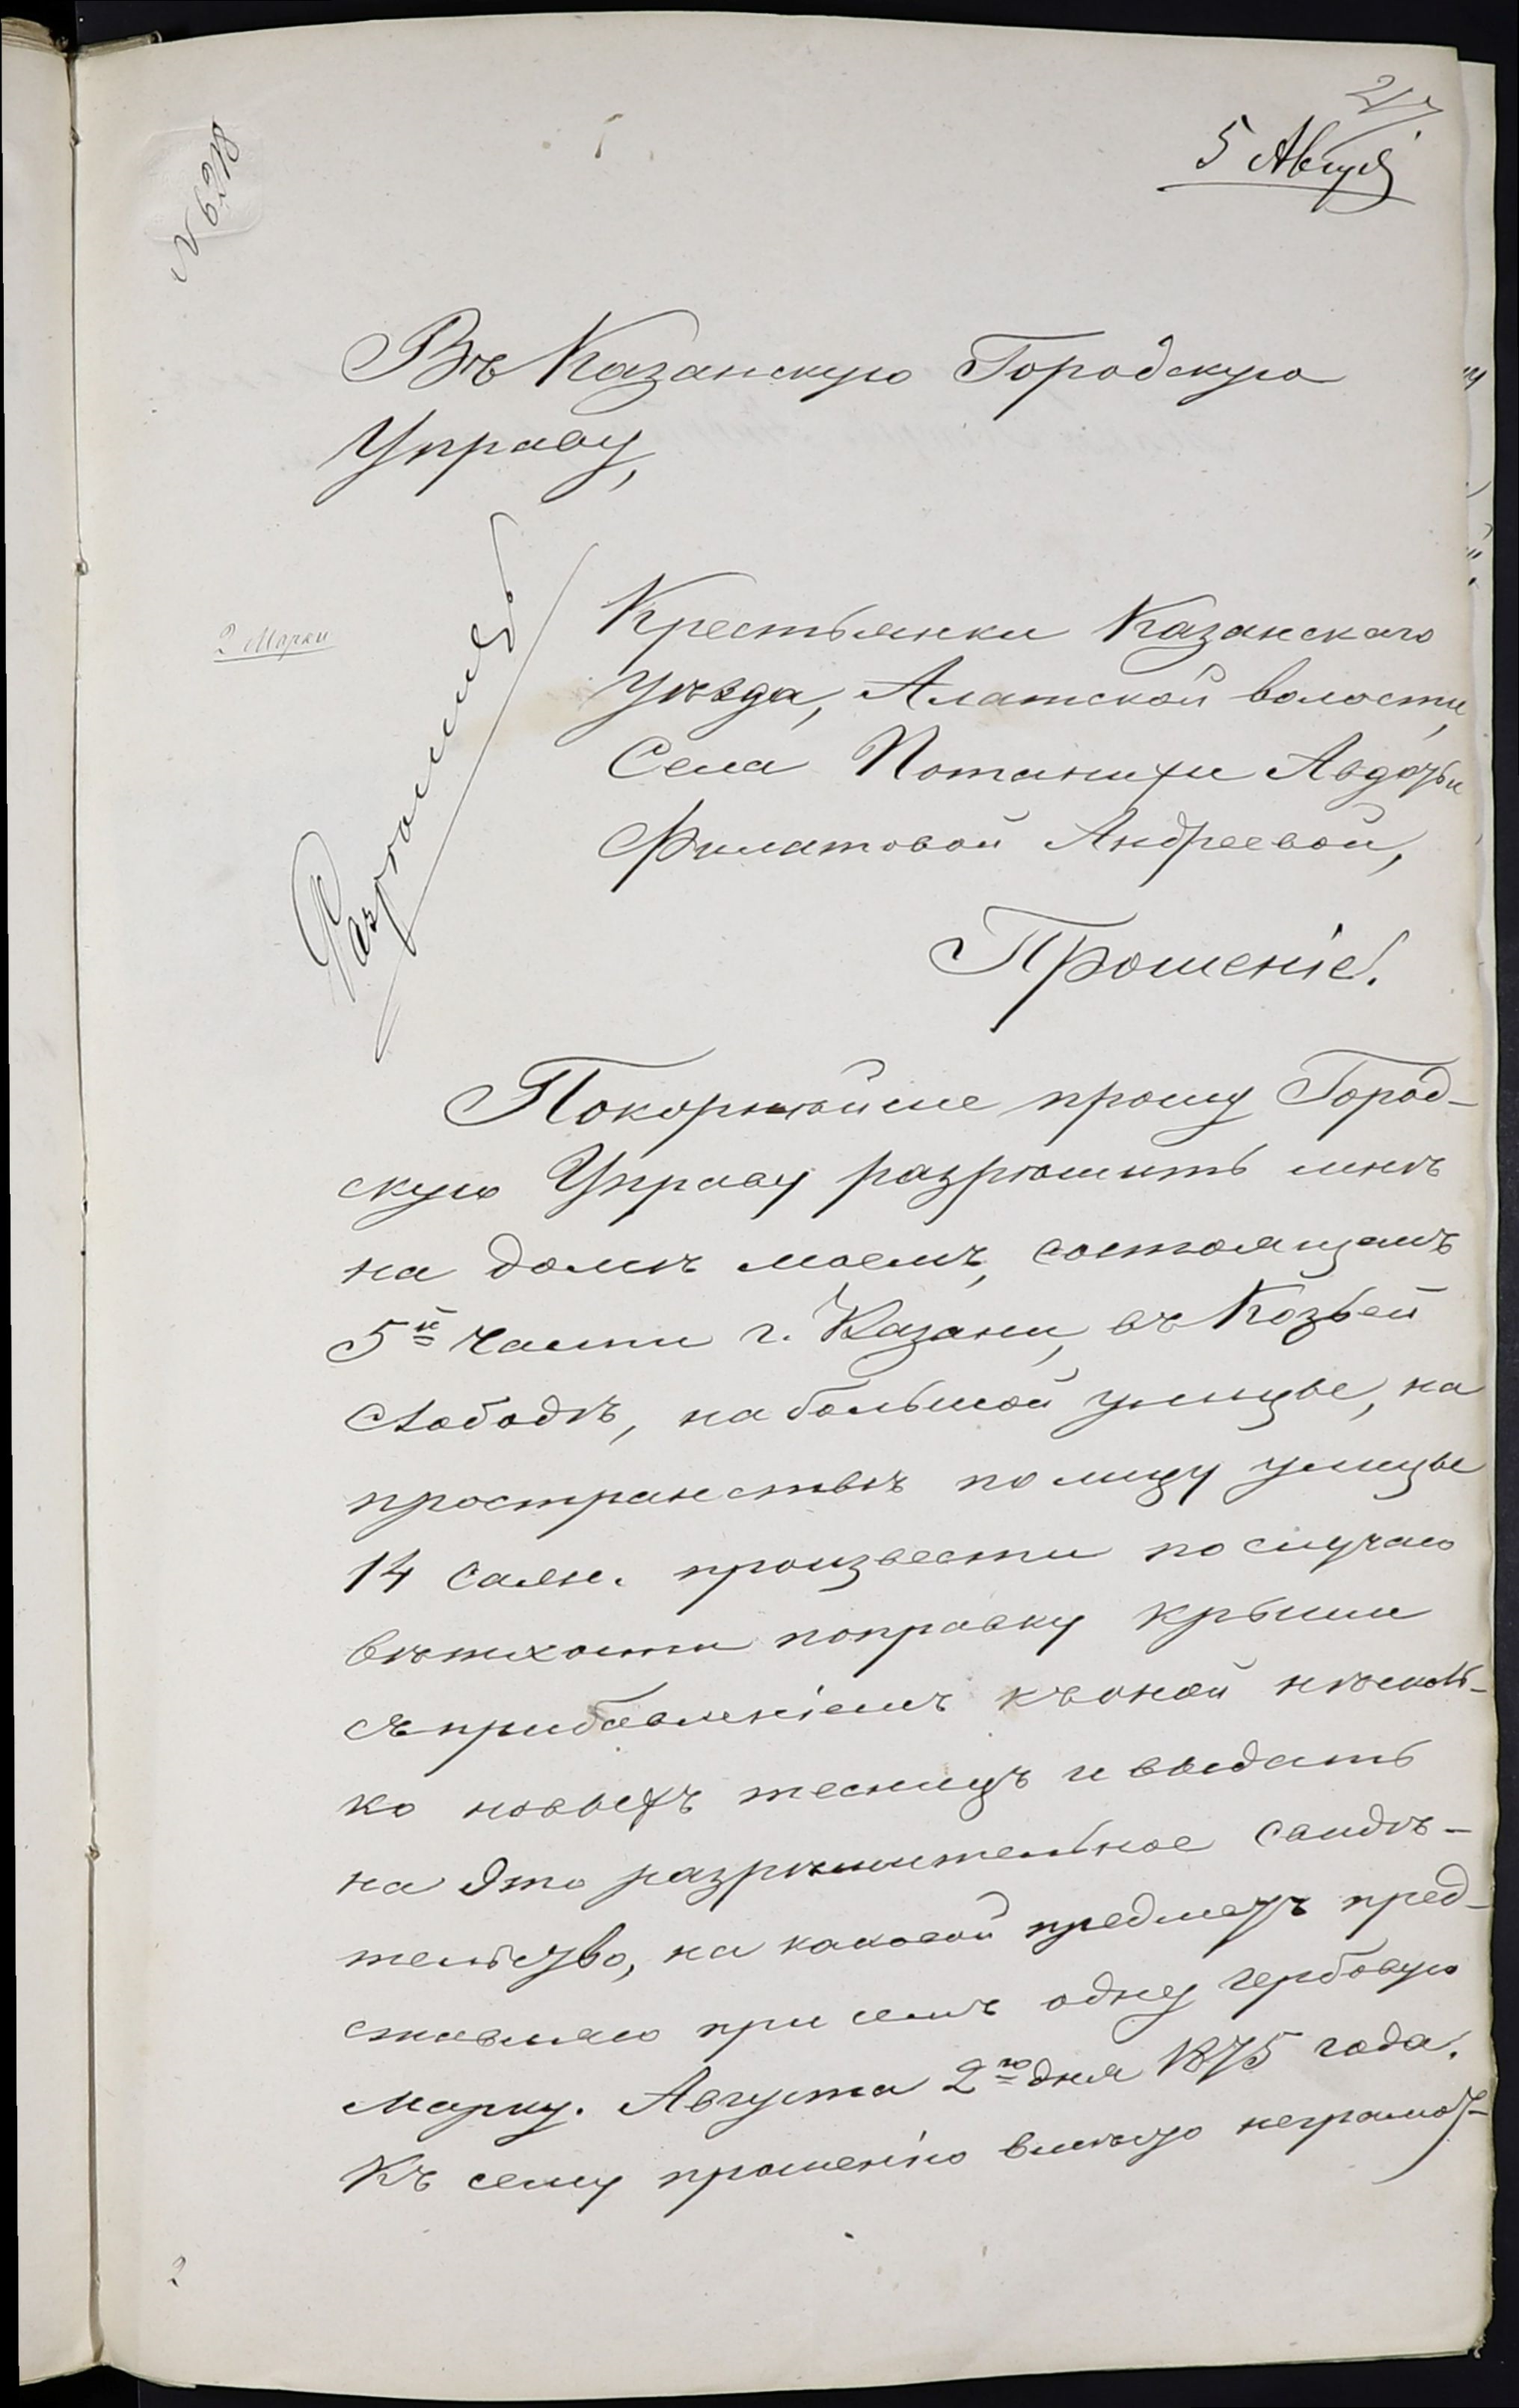 27
5 Август
N 6218
Въ Казанскую Городскую
Управу,
2 марки
Крестьянки Казанскаго
Уѣзда, Алатской волости,
Села Потанихи Авдотьи
Филатовой Андреевой,
Разрѣшить
Прошеніе.
Покорнѣйше прошу Город-
скую Управу разрѣшить мнѣ
на домѣ моемъ, состоящемъ
5й части г. Казани, въ Козьей
Слободѣ, на большой улицѣ, на
пространствѣ по лицу улицы
14 саж. произвести по случаю
вѣтхости поправку крыши
съ прибавленіемъ къ оной нѣсколь-
ко новыхъ тесницъ и выдать
на это разрѣшительное свидѣ-
тельство, на каковой предметъ пред-
ставляю при семъ одну гербовую
марку. Августа 2го дня 1875 года.
Къ сему прошенію вмѣсто неграмот-
2